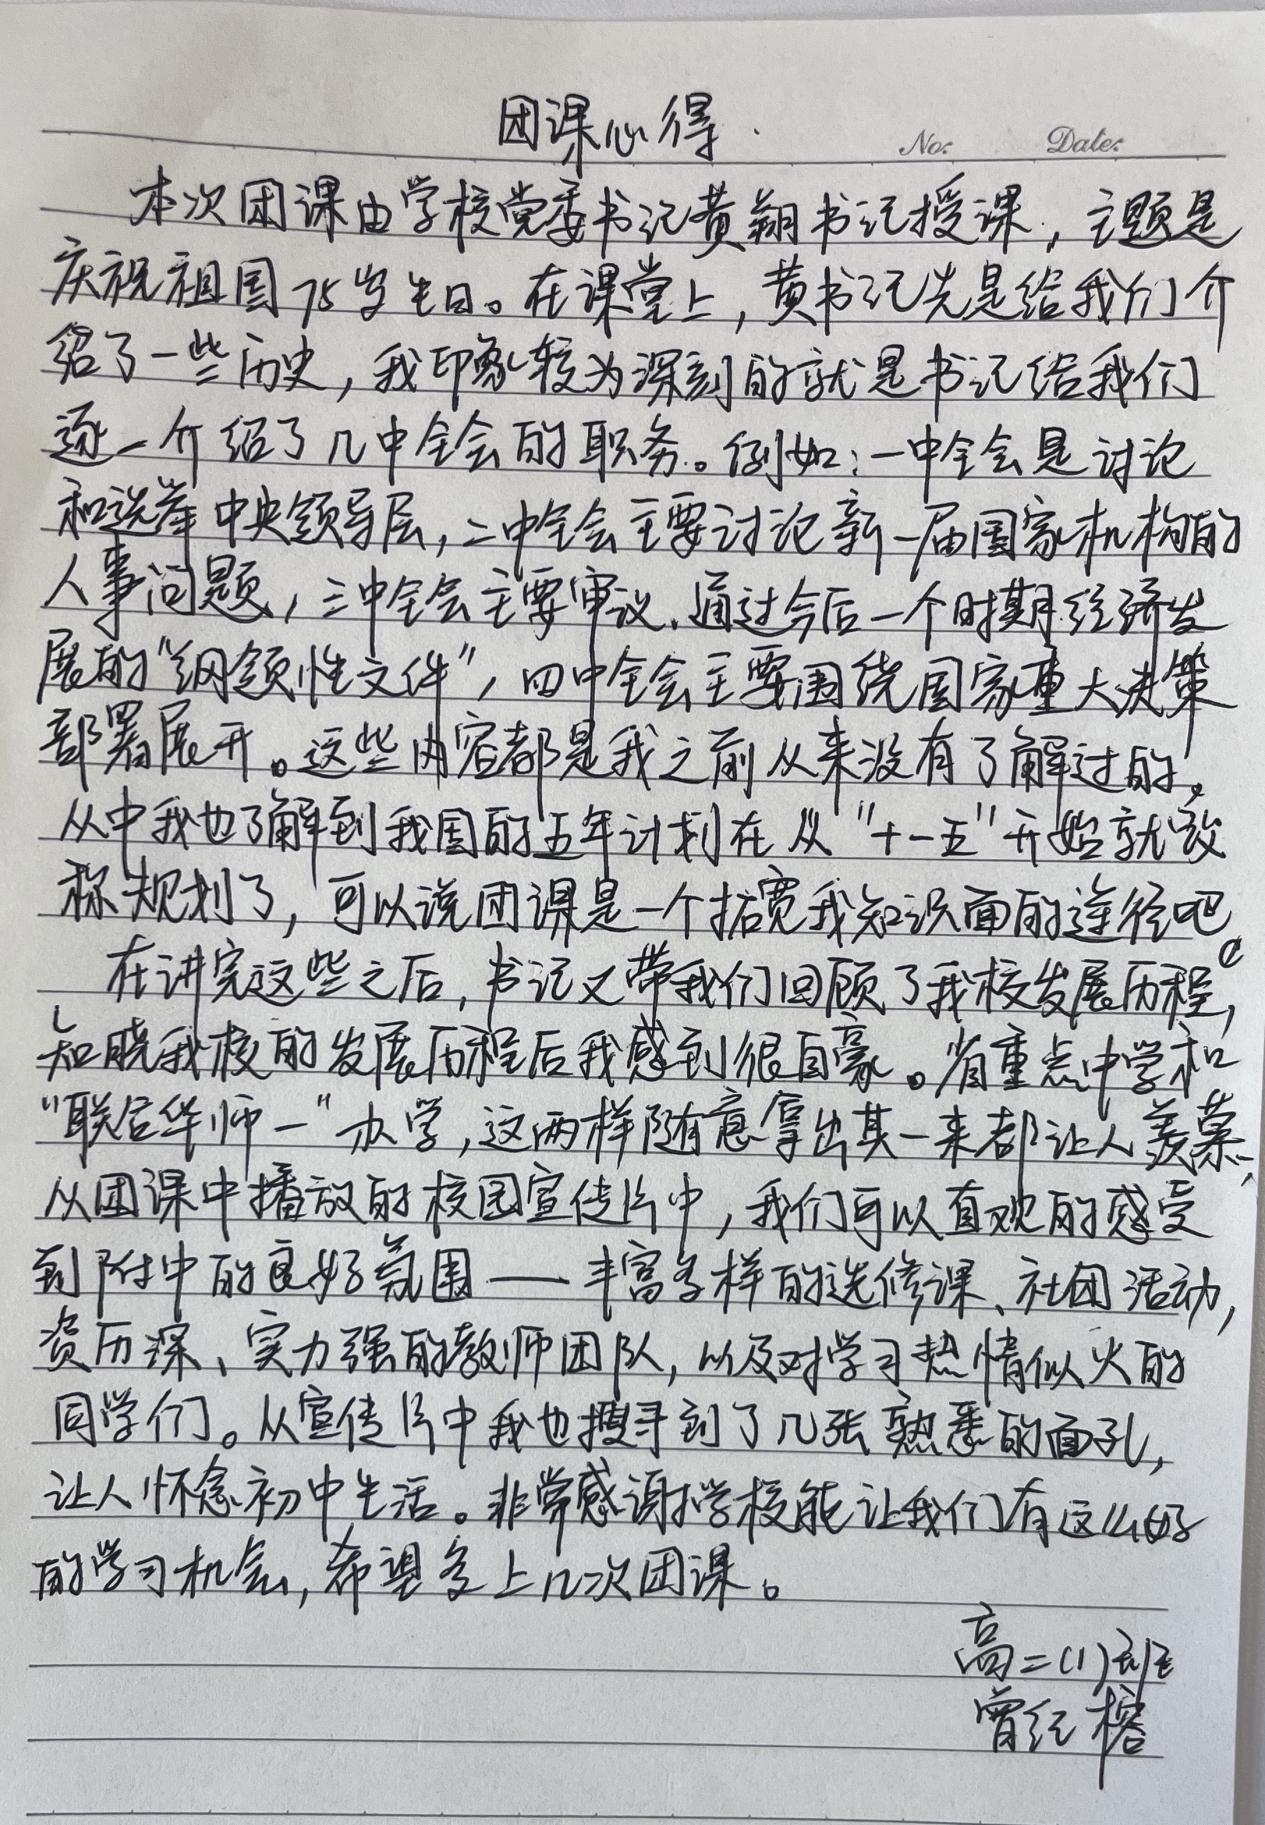 团课心得
No:    Date:
本次团课由学校党委书记黄翔书记授课，主题是
庆祝祖国75岁生日。在课堂上，黄书记先是给我们介
绍了一些历史，我印象较为深刻的就是书记给我们
逐一介绍了几中全会的职务。例如：一中全会是讨论
和选举中央领导层，二中全会主要讨论新一届国家机构的
人事问题，三中全会主要审议、通过今后一个时期经济发
展的“纲领性文件”，四中全会主要围绕国家重大决策
部署展开。这些内容都是我之前从来没有了解过的。
从中我也了解到我国的五年计划在从“十一五”开始就改
称规划了，可以说团课是一个拓宽我知识面的途径吧。
在讲完这些之后，书记又带我们回顾了我校发展历程，
知晓我校的发展历程后我感到很自豪。省重点中学和
“联合华师一”办学，这两样随意拿出其一来都让人羡慕，
从团课中播放的校园宣传片中，我们可以直观的感受
到附中的良好氛围——丰富多样的选修课、社团活动，
资历深、实力强的教师团队，以及对学习热情似火的
同学们。从宣传片中我也搜寻到了几张熟悉的面孔，
让人怀念初中生活。非常感谢学校能让我们有这么好
的学习机会，希望多上几次团课。
高二(1)班
曾红榕